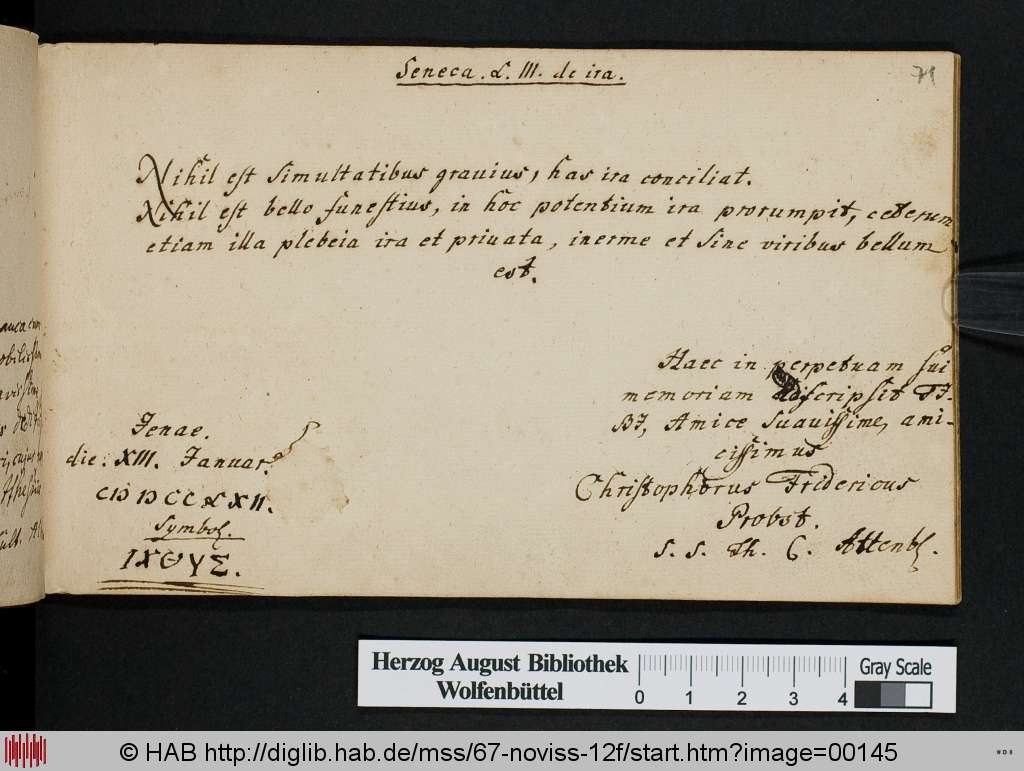 Seneca. L. III. de ira.
71
Nihil est simultatibus grauius, has ira conciliat.
Nihil est bello funestius, in hoc potentium ira prorumpit, ceterum
etiam illa plebeia ira et priuata, inerme et sine viribus bellum
est.
Haec in perpetuam sui
memoriam adscripsit
Amice Suauissime, ami-
cissimus
Christophorus Fridericus
Probst.
S. S. Th. C. Altenb.
Jenae.
die. XIII. Januar.
CIƆ IƆCCXXII.
Symbol.
ΙΧΘΥΣ.
Herzog August Bibliothek
Wolfenbüttel
0 1 2 3 4
Gray Scale
© HAB http://diglib.hab.de/mss/67-noviss-12f/start.htm?image=00145
WDB